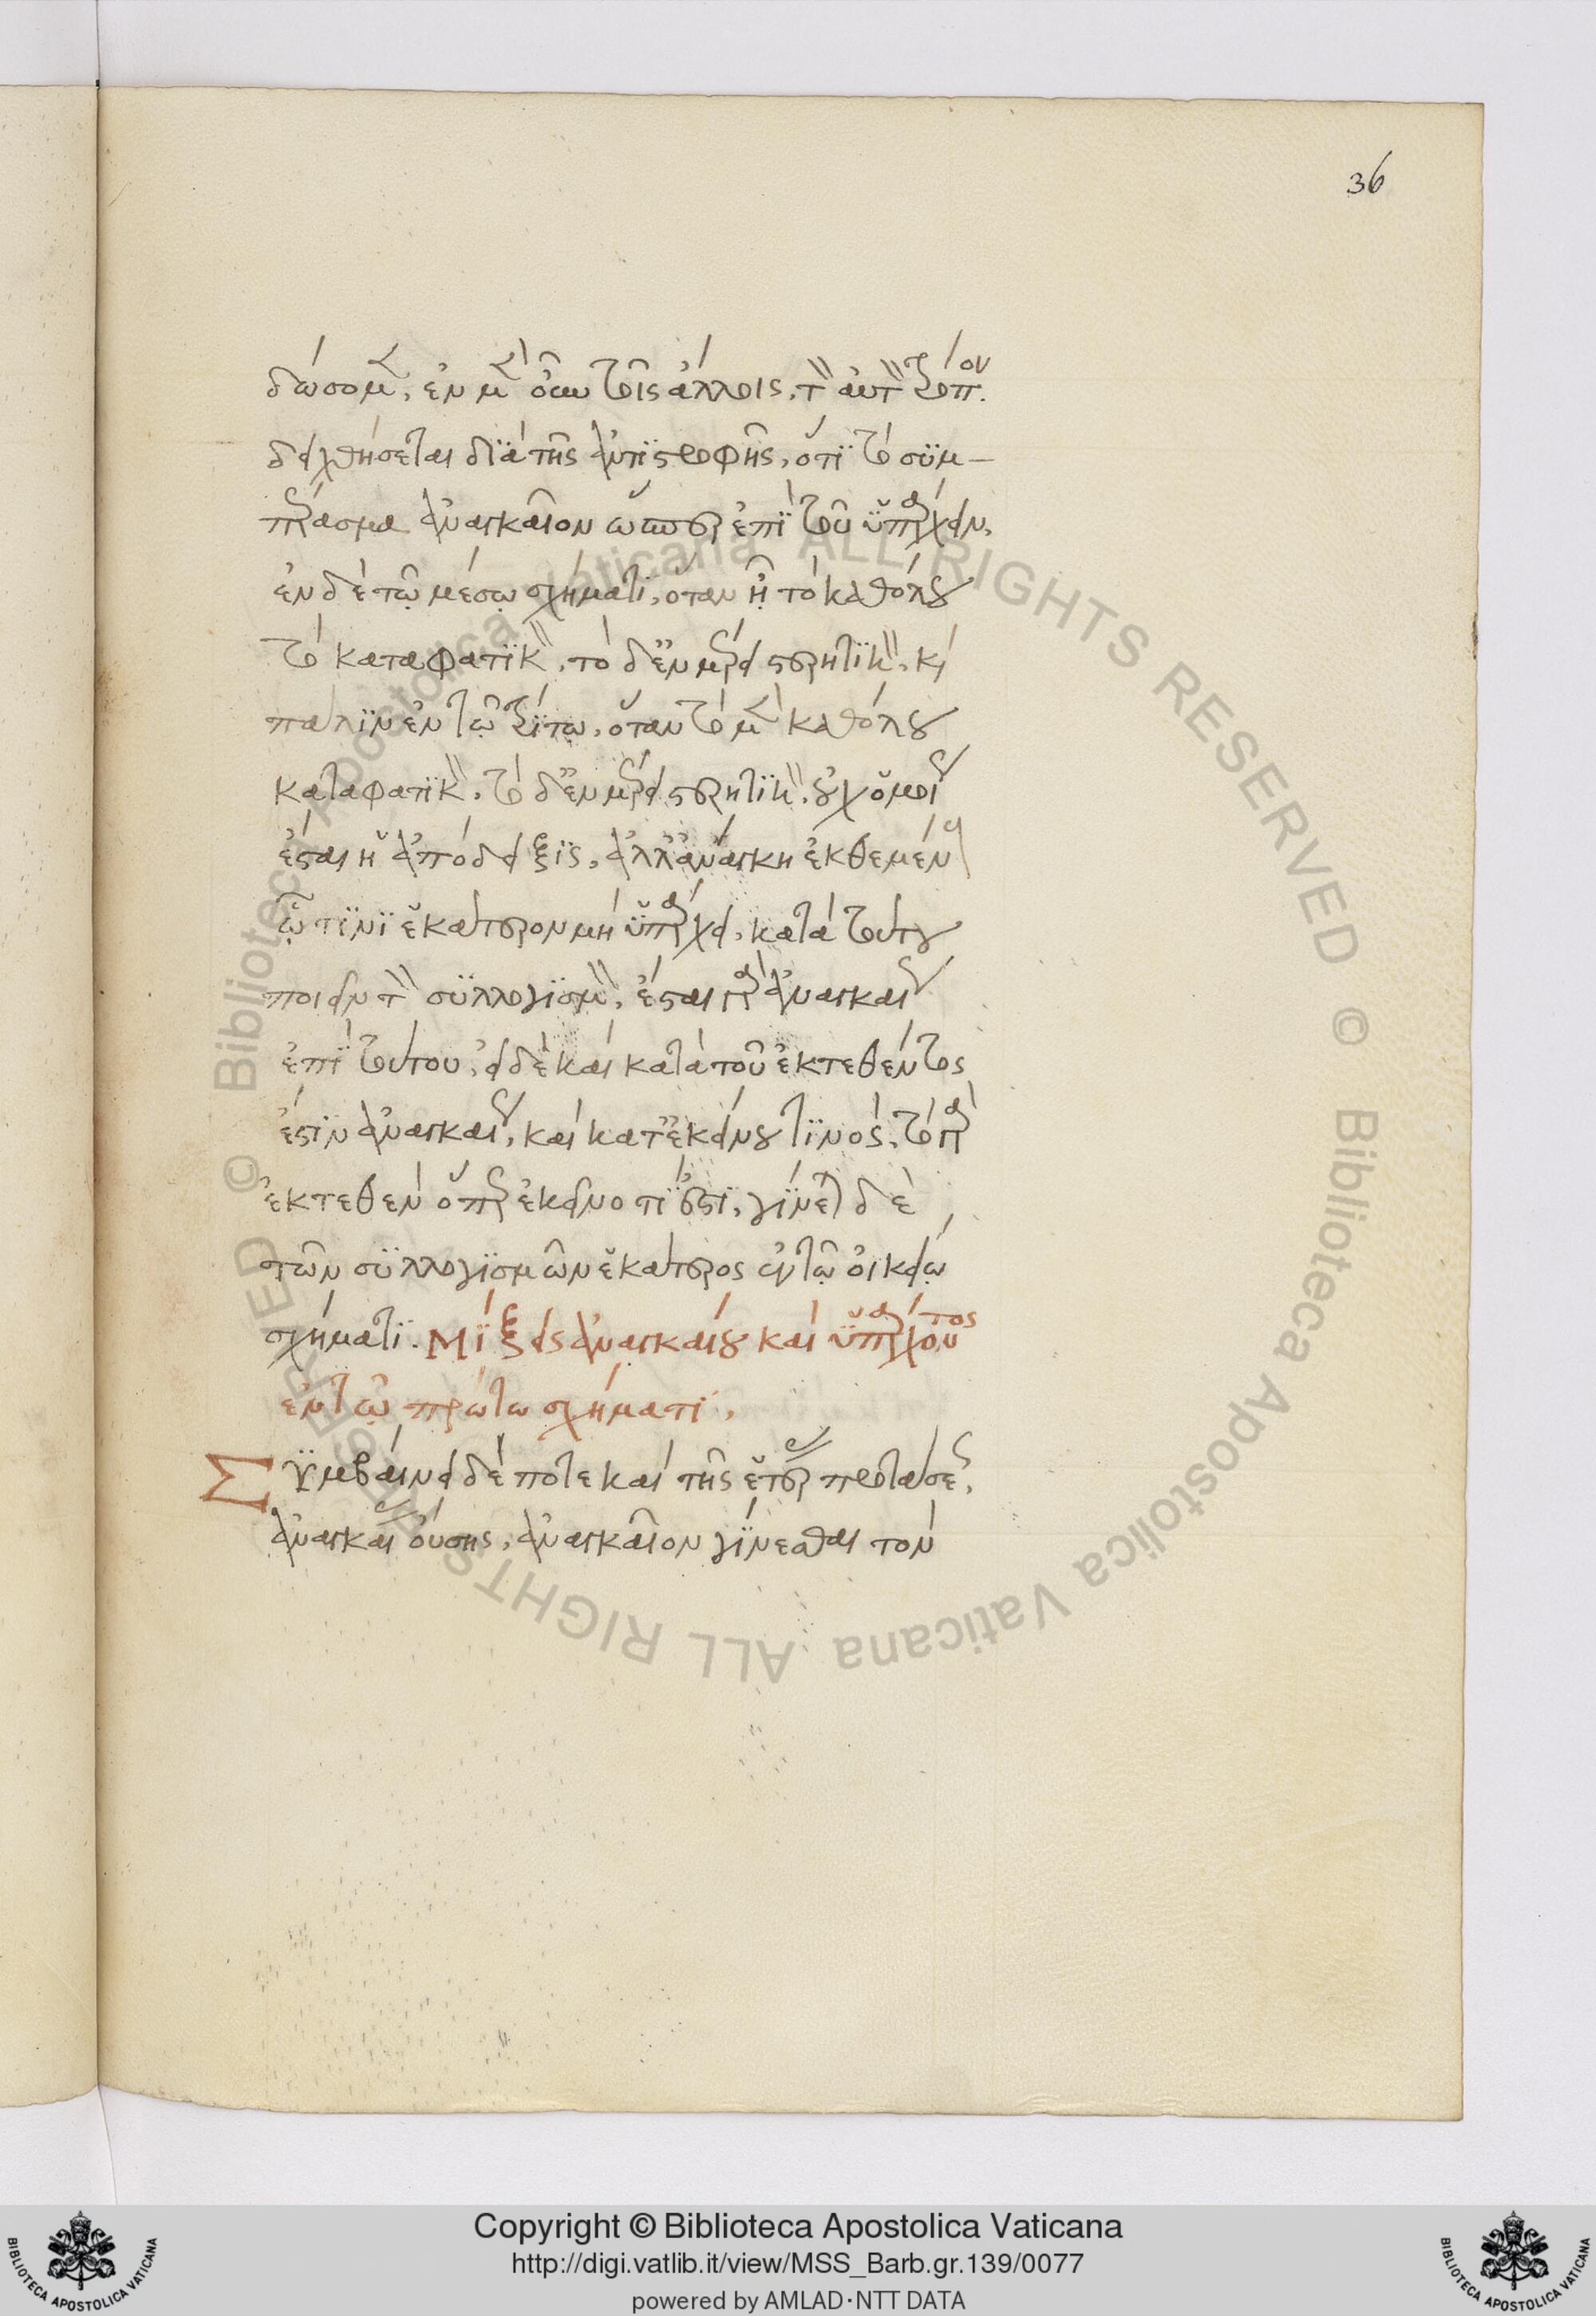 36
δώσομεν. ἐν μὲν οὖν τοῖς ἄλλοις, τὸν αὐτὸν τρόπον
δειχθήσεται διὰ τῆς ἀντιστροφῆς, ὅτι τὸ συμ-
πέρασμα ἀναγκαῖον ὥσπερ ἐπὶ τοῦ ὑπάρχειν,
ἐν δὲ τῷ μέσῳ σχήματι, ὅταν ᾖ τὸ καθόλου
τὸ καταφατικὸν, τὸ δ' ἐν μέρει στερητικὸν, καὶ
πάλιν ἐν τῷ τρίτῳ, ὅταν τὸ μὲν καθόλου
καταφατικὸν, τὸ δ' ἐν μέρει στερητικὸν, οὐχ ὁμοίως
ἔσται ἡ ἀπόδειξις, ἀλλ' ἀνάγκη ἐκθεμένους
ᾧ τινὶ ἑκάτερον μὴ ὑπάρχει, κατὰ τούτου
ποιεῖν τὸν συλλογισμὸν, ἔσται γὰρ ἀναγκαῖος
ἐπὶ τούτου, εἰ δὲ καὶ κατὰ τοῦ ἐκτεθέντος
ἐστὶν ἀναγκαῖος, καὶ κατ' ἐκείνου τινός, τὸ γὰρ
ἐκτεθὲν ὅπερ ἐκεῖνο τί ἐστι, γίνεται δὲ
τῶν συλλογισμῶν ἑκάτερος ἐν τῷ οἰκείῳ
σχήματι. Μίξεις ἀναγκαίου καὶ ὑπάρχοντος
ἐν τῷ πρώτῳ σχήματι.
Συμβαίνει δέ ποτε καὶ τῆς ἑτέρας προτάσεως
ἀναγκαίας οὔσης, ἀναγκαῖον γίνεσθαι τὸν
© Biblioteca Apostolica Vaticana ALL RIGHTS RESERVED
© Biblioteca Apostolica Vaticana ALL RIGHTS RESERVED
Copyright © Biblioteca Apostolica Vaticana
http://digi.vatlib.it/view/MSS_Barb.gr.139/0077
powered by AMLAD·NTT DATA
BIBLIOTECA APOSTOLICA VATICANA
BIBLIOTECA APOSTOLICA VATICANA